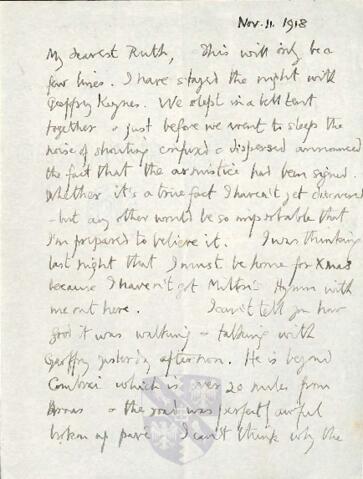 Nov. 11. 1918
My dearest Ruth, This will only be a
few lines. I have stayed the night with
Geoffrey Keynes. We slept in a bell tent
together & just before we went to sleep the
noise of shouting confused & dispersed announced
the fact that the armistice had been signed.
Whether it's a true fact I haven't yet discovered
- but any other would be so improbable that
I'm prepared to believe it. I was thinking
last night that I must be home for Xmas
because I haven't got Milton's Hymn with
me out here. I can't tell you how
good it was walking & talking with
Geoffrey yesterday afternoon. He is beyond
Cambrai which is over 20 miles from
Arras & the road was perfectly awful
broken up pavé I can't think why the